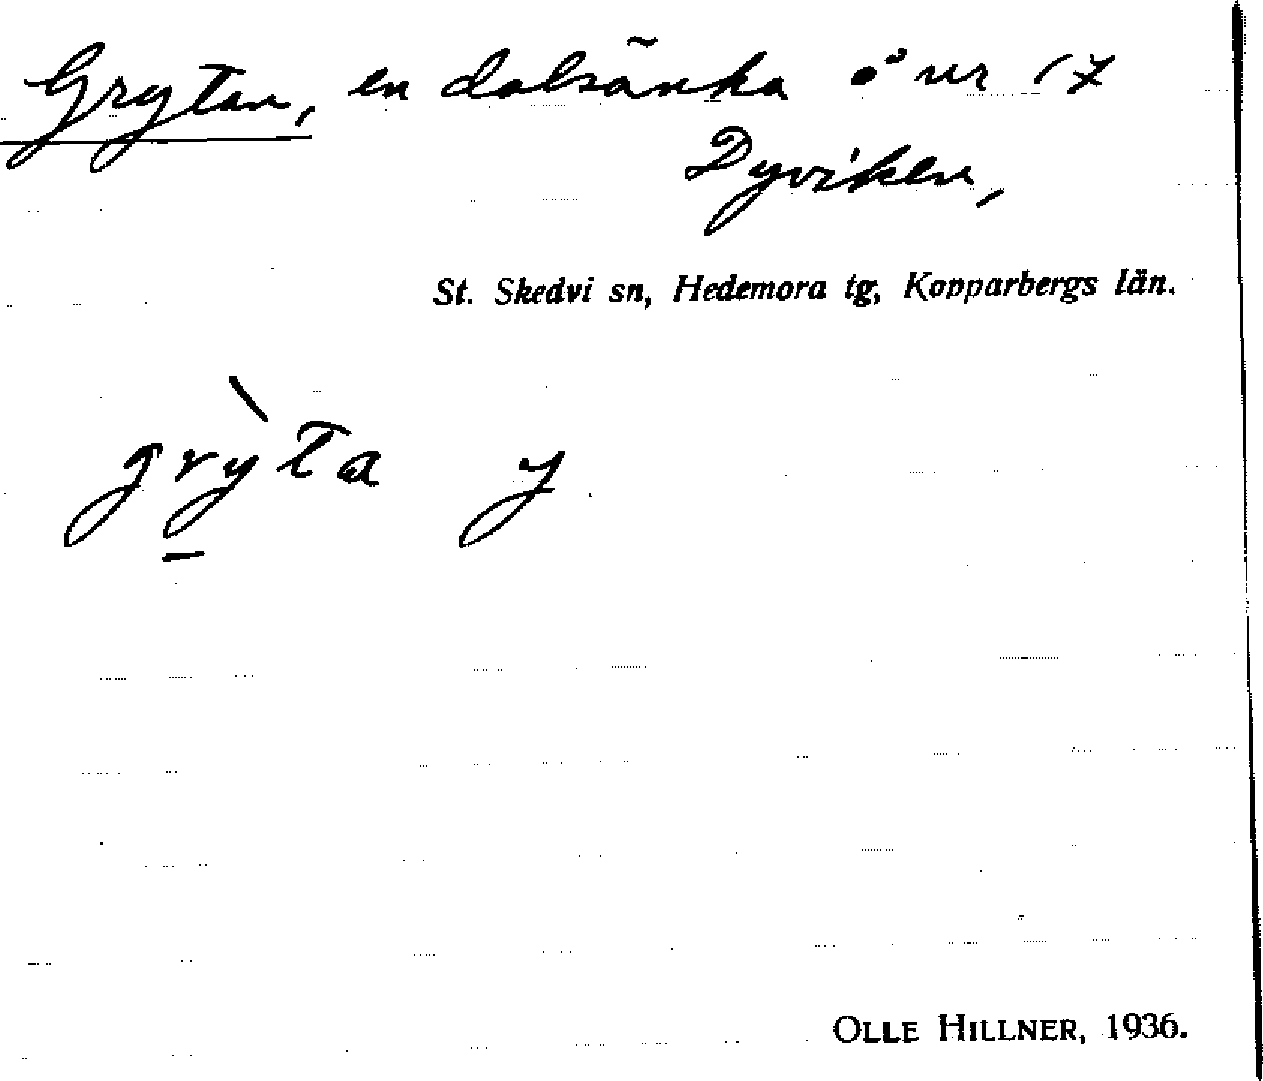 Grytan, en dalsänka å nr 17
Dyviken,
St. Skedvi sn, Hedemora tg, Kopparbergs län.
grỳ̠ta y
OLLE HILLNER, 1936.